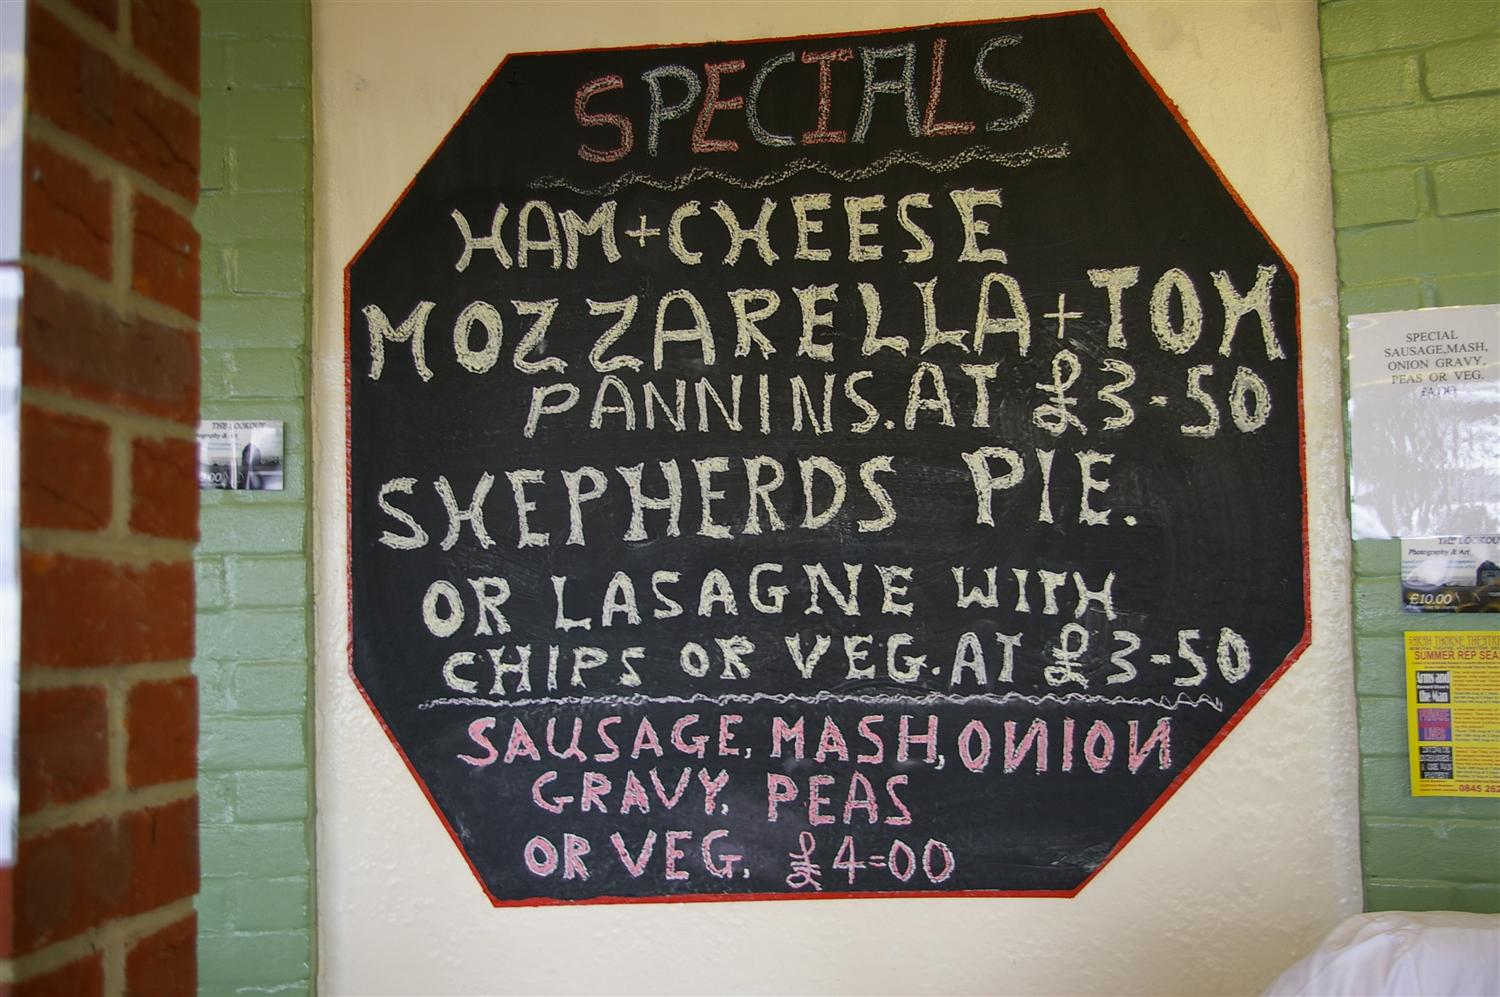 SPECIALS
HAM+CHEESE
MOZZARELLA+TOM
PANNINS.AT £3-50
SHEPHERDS PIE.
OR LASAGNE WITH
CHIPS OR VEG.AT £3-50
SAUSAGE, MASH, ONION
GRAVY, PEAS
OR VEG, £4=00
SPECIAL
SAUSAGE,MASH,
ONION GRAVY,
PEAS OR VEG.
THE LOOKOUT
THE LOOKOUT
Photography & Art
£10.00
SARAH THORNE THEATRE
SUMMER REP SEA
Arms and
the Man
PRIVATE
LIVES
0845 262